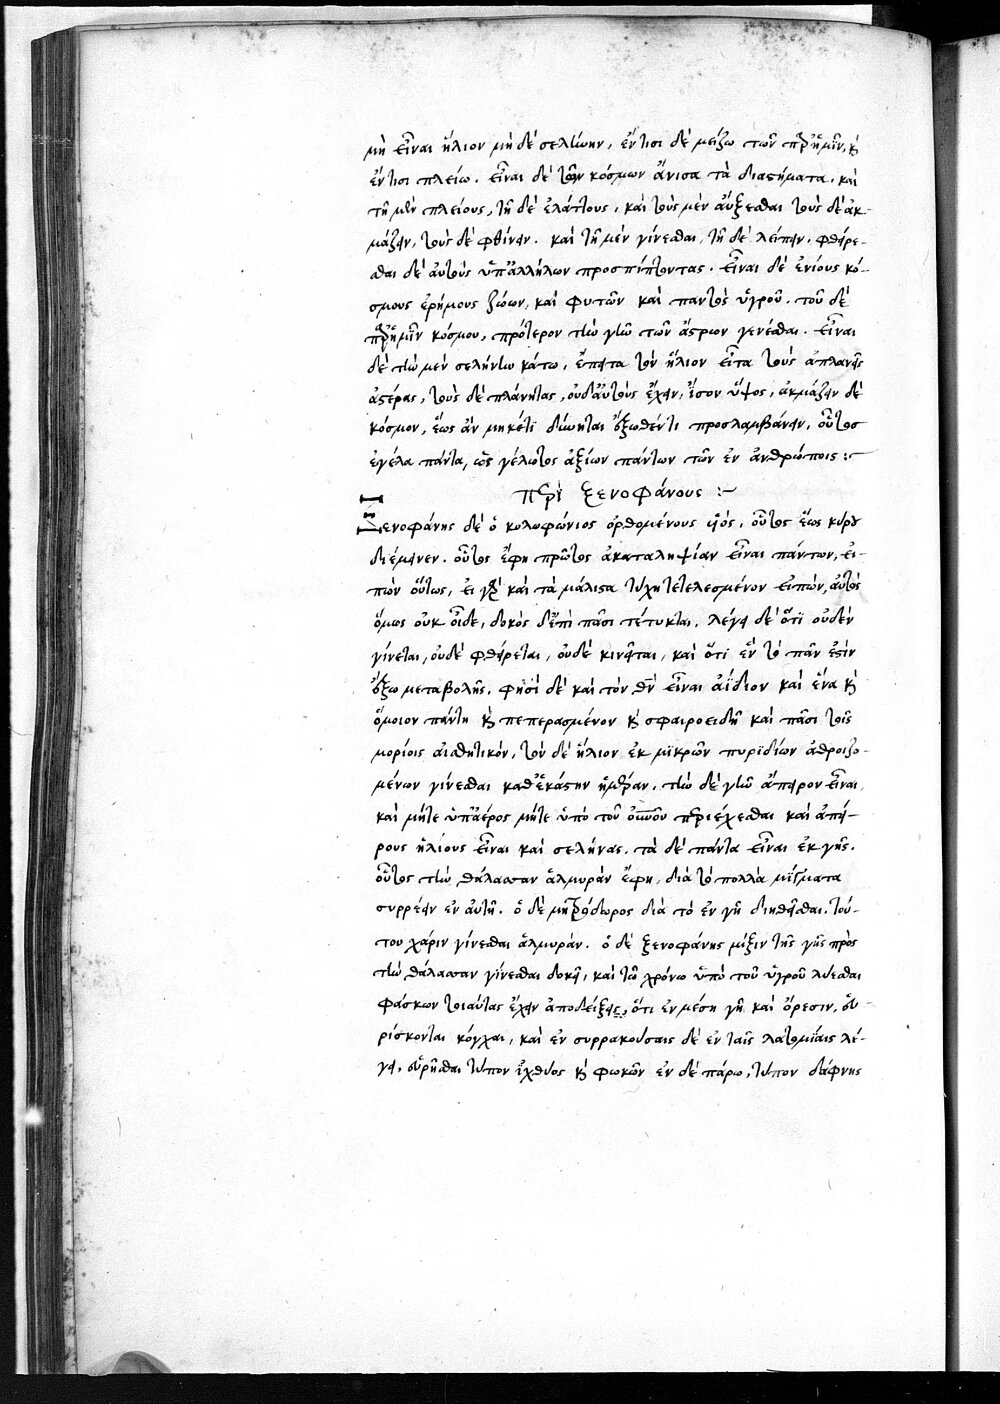 μὴ εἶναι ἥλιον μηδὲ σελήνην, ἔν τισι δὲ μείζω τῶν παρ' ἡμῖν, καὶ
ἔν τισι πλείω. εἶναι δὲ τῶν κόσμων ἄνισα τὰ διαστήματα. καὶ
τῇ μὲν πλείους, τῇ δὲ ἐλάττους, καὶ τοὺς μὲν αὔξεσθαι τοὺς δὲ ἀκ-
μάζειν, τοὺς δὲ φθίνειν. καὶ τῇ μὲν γίνεσθαι, τῇ δὲ λείπειν. φθείρε-
σθαι δὲ αὐτοὺς ὑπ' ἀλλήλων προσπίπτοντας. εἶναι δὲ ἐνίους κό-
σμους ἐρήμους ζώων, καὶ φυτῶν καὶ παντὸς ὑγροῦ. τοῦ δὲ
παρ' ἡμῖν κόσμου, πρότερον τὴν γῆν τῶν ἄστρων γενέσθαι. εἶναι
δὲ τὴν μὲν σελήνην κάτω, ἔπειτα τὸν ἥλιον εἶτα τοὺς ἀπλανεῖς
ἀστέρας, τοὺς δὲ πλάνητας, οὐδ' αὐτοὺς ἔχειν, ἴσον ὕψος, ἀκμάζειν δὲ
κόσμον, ἕως ἂν μηκέτι δύνηται ἔξωθέν τι προσλαμβάνειν, οὗτος
ἐγέλα πάντα, ὡς γέλωτος ἀξίων πάντων τῶν ἐν ἀνθρώποις :~
περὶ ξενοφάνους :~
Ξενοφάνης δὲ ὁ κολοφώνιος ὀρθομένους υἱός, οὗτος ἕως κύρου
διέμεινεν. οὗτος ἔφη πρῶτος ἀκαταληψίαν εἶναι πάντων, εἰ-
πὼν οὕτως, εἰ γὰρ καὶ τὰ μάλιστα τύχῃ τετελεσμένον εἰπών, αὐτὸς
ὅμως οὐκ οἶδε, δοκὸς δ' ἐπὶ πᾶσι τέτυκται. λέγει δὲ ὅτι οὐδὲν
γίνεται, οὐδὲ φθείρεται, οὐδὲ κινεῖται, καὶ ὅτι ἓν τὸ πᾶν ἐστὶν
ἔξω μεταβολῆς. φησὶ δὲ καὶ τὸν θν̅ εἶναι ἀΐδιον καὶ ἕνα καὶ
ὅμοιον πάντῃ καὶ πεπερασμένον καὶ σφαιροειδῆ καὶ πᾶσι τοῖς
μορίοις αἰσθητικόν, τὸν δὲ ἥλιον ἐκ μικρῶν πυριδίων ἀθροιζο-
μένων γίνεσθαι καθ' ἑκάστην ἡμέραν. τὴν δὲ γῆν ἄπειρον εἶναι,
καὶ μήτε ὑπ' ἀέρος μήτε ὑπὸ τοῦ οὐ̅νοῦ περιέχεσθαι καὶ ἀπεί-
ρους ἡλίους εἶναι καὶ σελήνας. τὰ δὲ πάντα εἶναι ἐκ γῆς.
οὗτος τὴν θάλασσαν ἁλμυρὰν ἔφη, διὰ τὸ πολλὰ μίγματα
συρρέειν ἐν αὐτῇ. ὁ δὲ μητρόδωρος διὰ τὸ ἐν γῇ διηθεῖσθαι. τού-
του χάριν γίνεσθαι ἁλμυράν. ὁ δὲ ξενοφάνης μίξιν τῆς γῆς πρὸς
τὴν θάλασσαν γίνεσθαι δοκεῖ, καὶ τῷ χρόνῳ ὑπὸ τοῦ ὑγροῦ λύεσθαι
φάσκων τοιαύτας ἔχειν ἀποδείξεις, ὅτι ἐν μέσῃ γῇ καὶ ὄρεσιν, εὑ-
ρίσκονται κόγχαι, καὶ ἐν συρρακούσαις δὲ ἐν ταῖς λατομίαις λέ-
γει, εὑρῆσθαι τύπον ἰχθύος καὶ φωκῶν ἐν δὲ πάρῳ, τύπον δάφνης